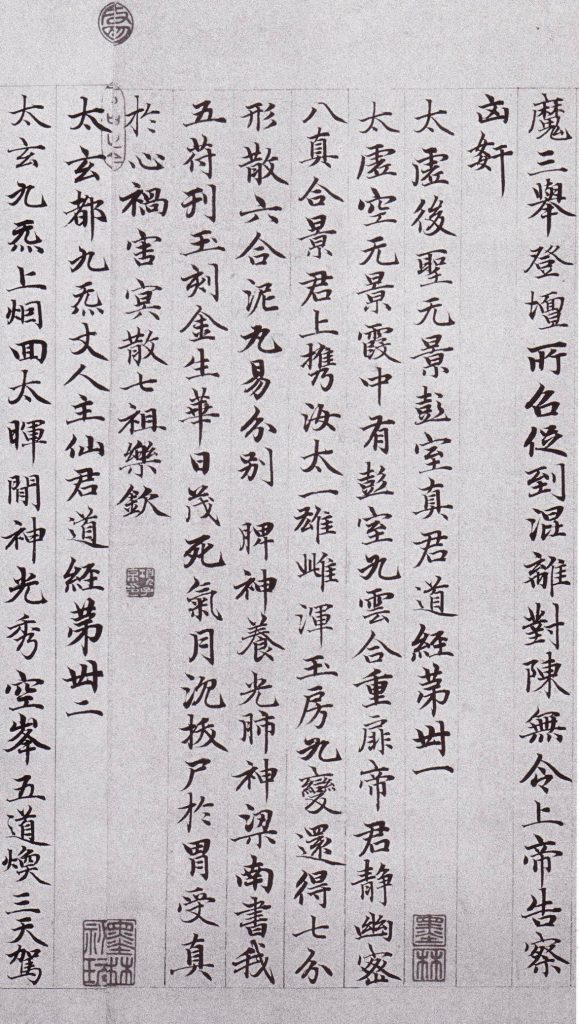 魔三舉登壇所召促到混離對陳無令上帝告察
凶姧
太虛後聖无景彭室真君道經苐卅一
太虛空无景霞中有彭室九雲合重扉帝君静幽密
八真合景君上携汝太一雄雌渾玉房九變還得七分
形散六合泥丸易分别 脾神養光肺神梁南書我
五苻刊玉刻金生華日茂死氣月沉拔尸於胃受真
於心禍害冥散七祖樂欽
太玄都九炁丈人主仙君道經苐卅二
太玄九炁上烟回太暉閒神光秀空峯五道煥三天駕
墨林
墨林祕玩